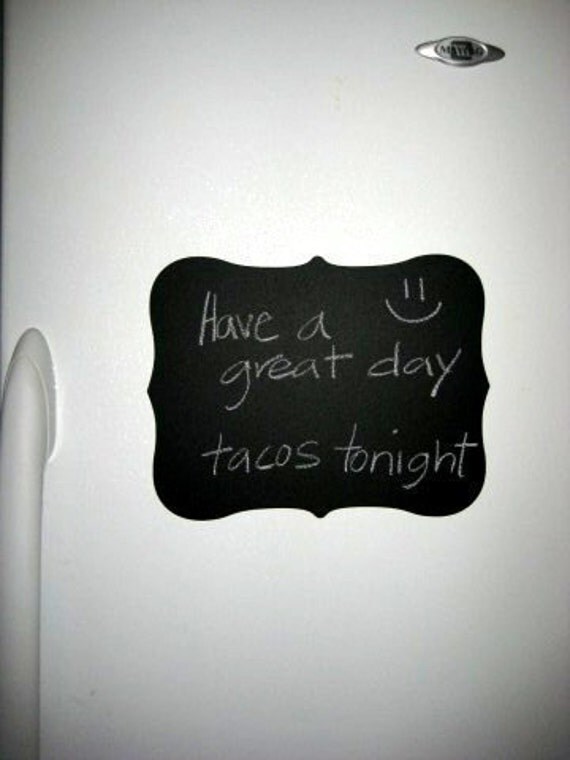 MAYTAG
Have a
great day
tacos tonight